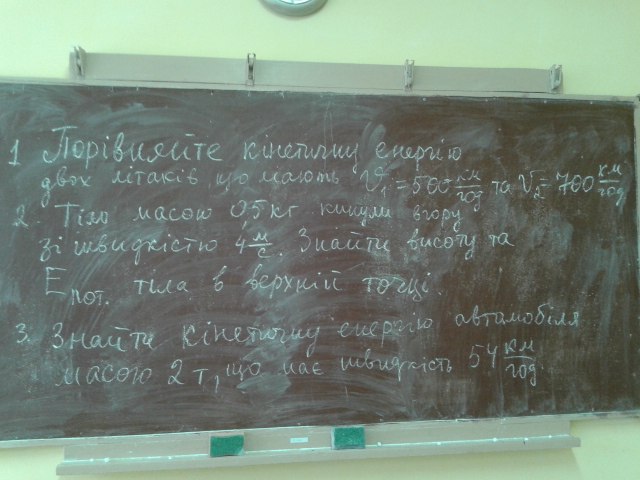 1 Порівняйте кінетичну енергію
двох літаків, що мають V₁ = 500 км/год та V₂ = 700 км/год
2. Тіло масою 05 кг кинули вгору
зі швидкістю 4 м/с. Знайти висоту та
Eпот. тіла в верхній точці.
3. Знайти кінетичну енергію автомобіля
масою 2 т, що має швидкість 54 км/год